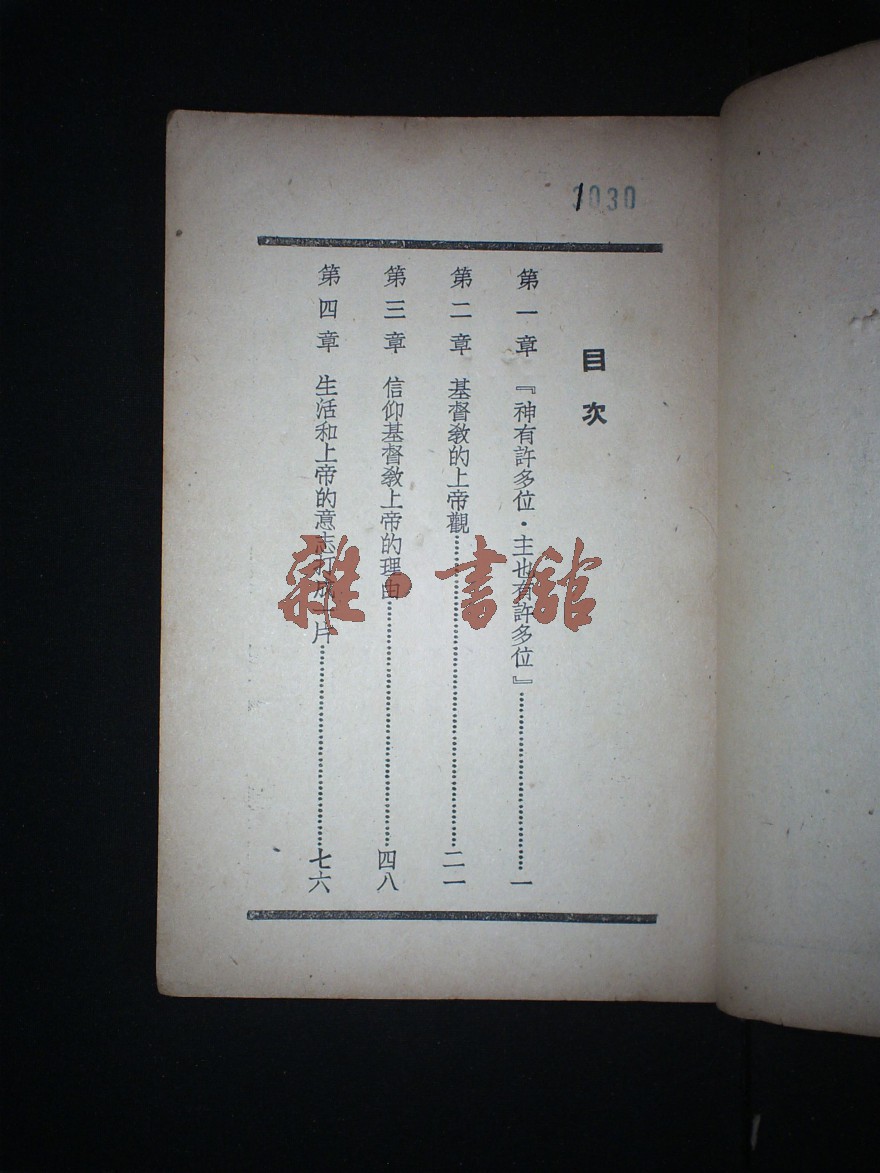 1030
目次
第一章 『神有許多位・主也有許多位』………………一
第二章 基督敎的上帝觀………………二一
第三章 信仰基督敎上帝的理由………………四八
第四章 生活和上帝的意志打成一片………………七六
雜・書館